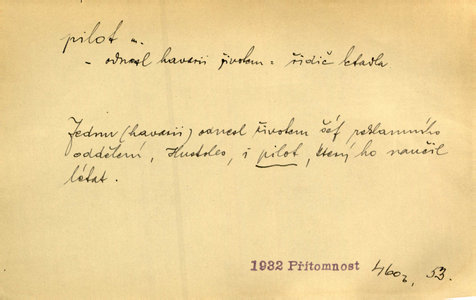 pilot m.
- odnesl havarii životem = řidič letadla
Jednu (havarii) odnesl životem šéf reklamního
oddělení, i pilot, který ho naučil
létat.
1932 Přítomnost 460, 53.